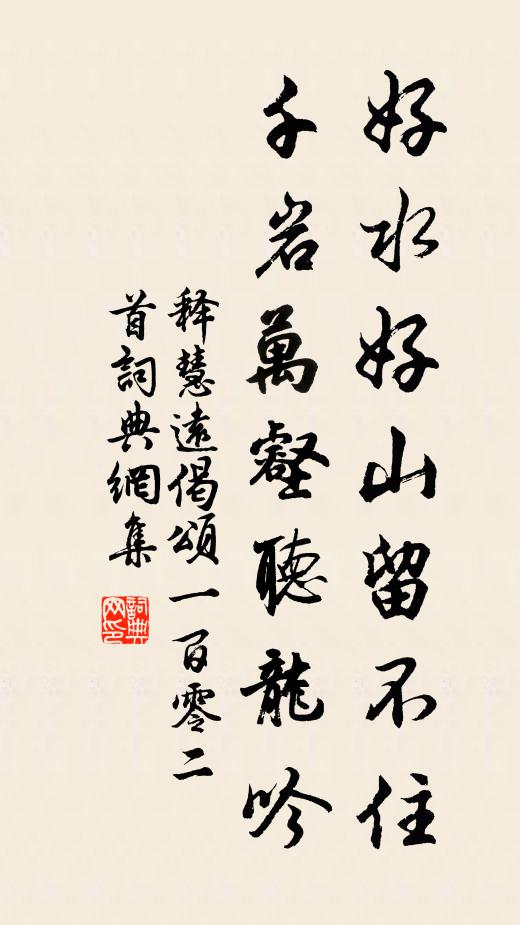 好水好山留不住
千岩萬壑聽龍吟
释慧遠偈頌一百零二
首詞典網集
詞典网印